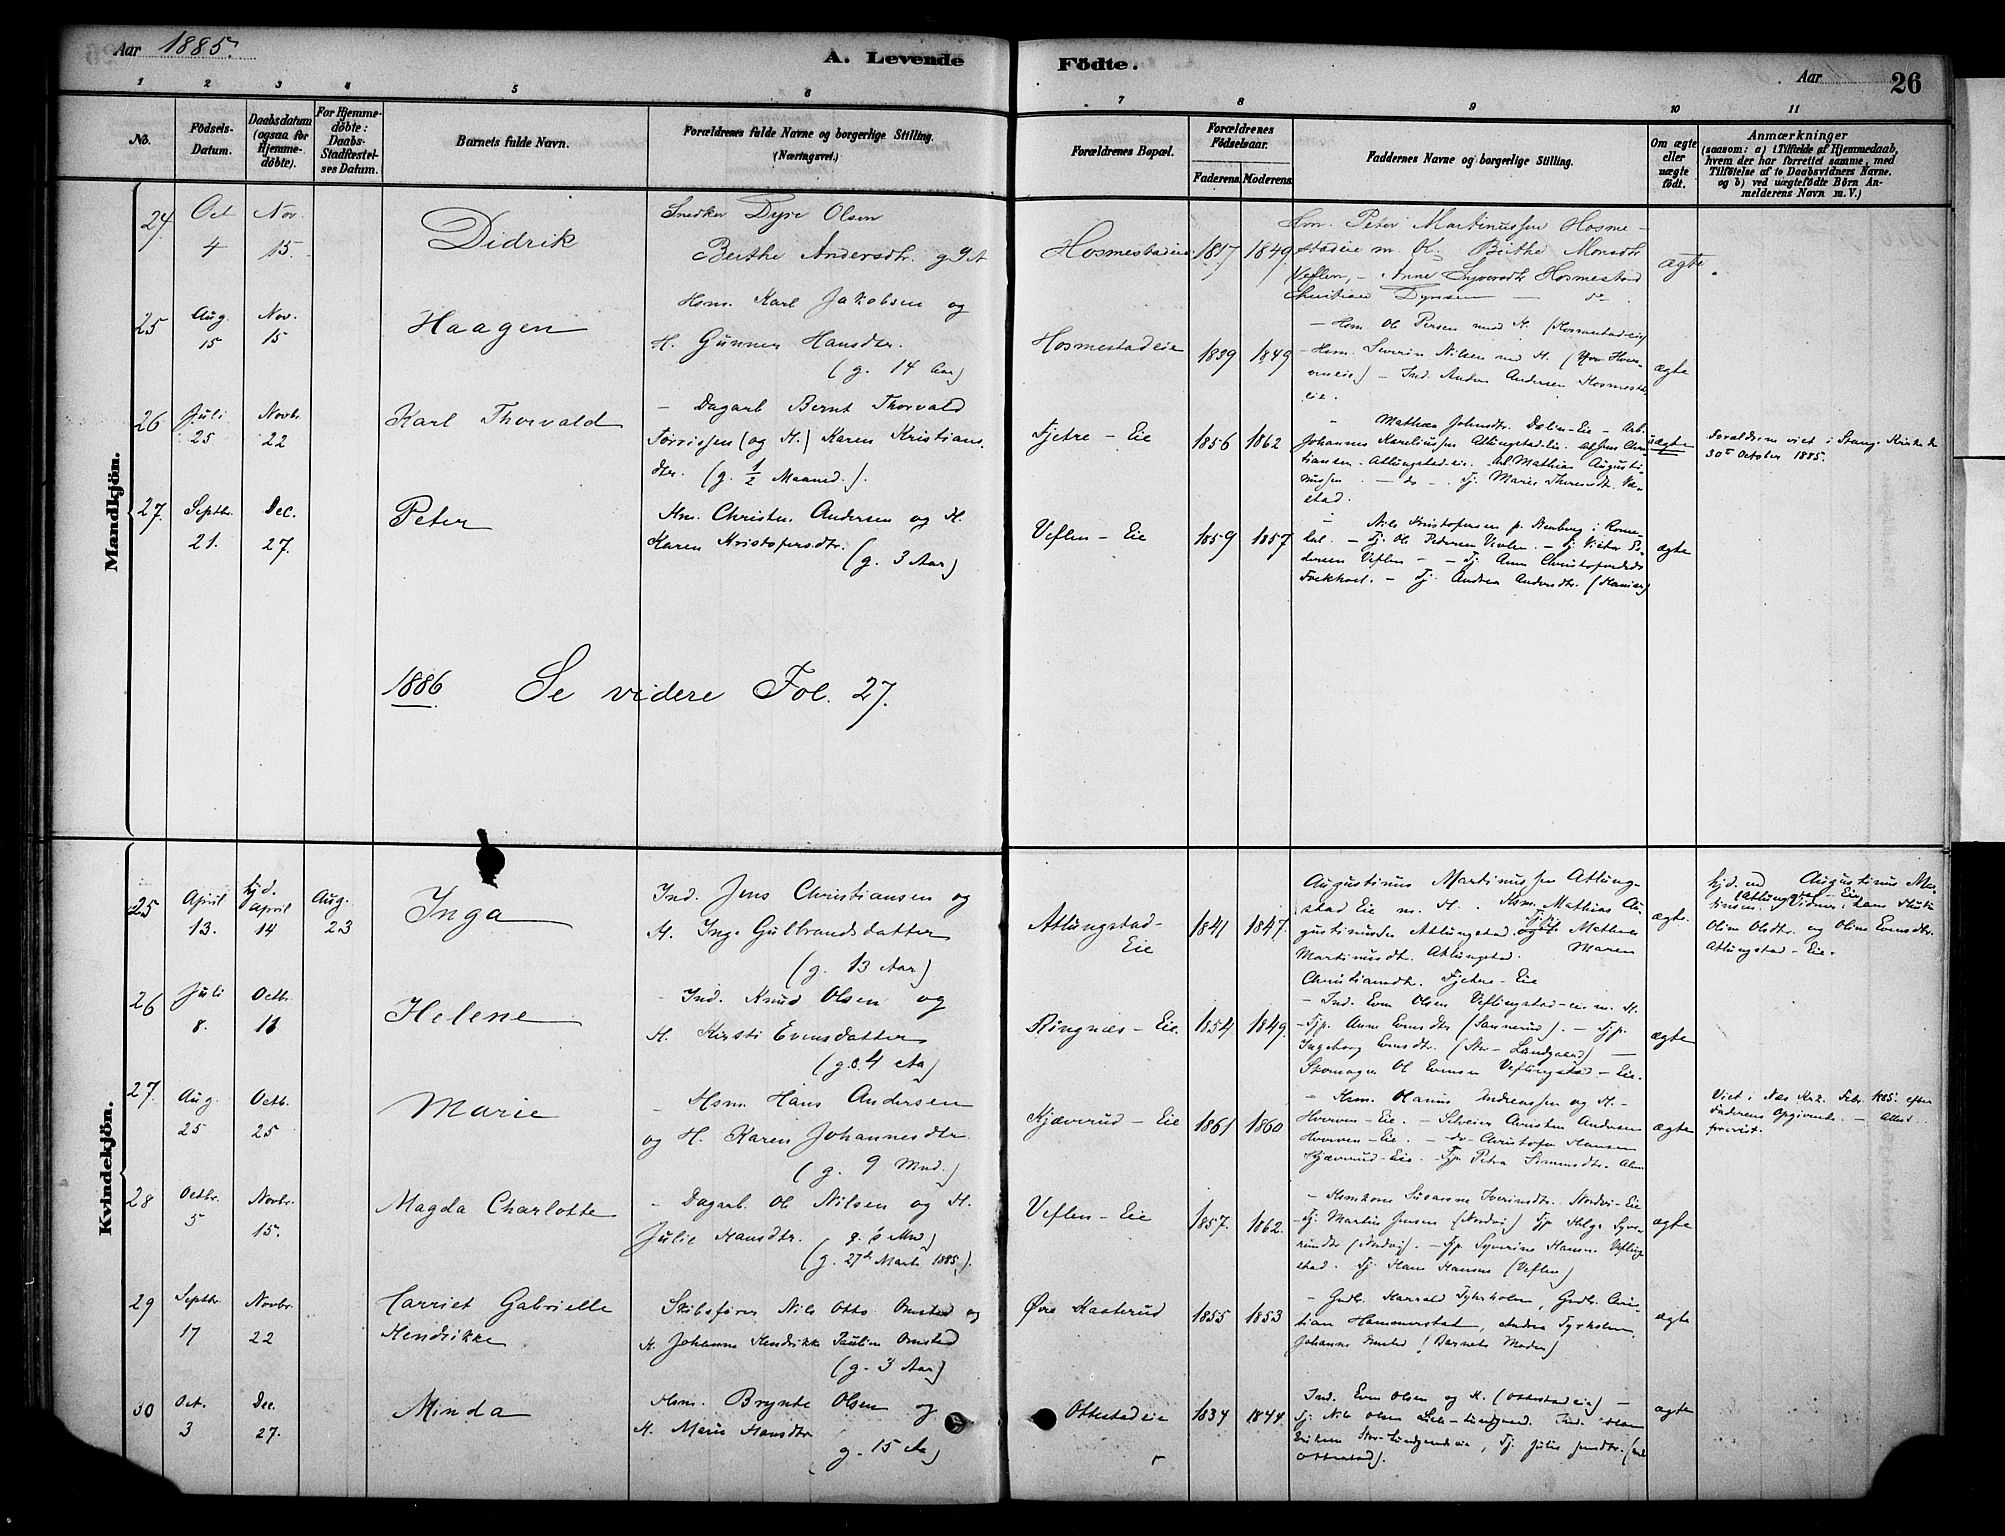 Aar 1885.
A. Levende Födte.
Aar 26
1 2 3 4 5 6 7 8 9 10 11
No.
Födsels-Datum.
Daabsdatum (ogsaa for Hjemmedöbte).
For Hjemmedöbte: Daabs-Stadfæstelses Datum.
Barnets fulde Navn.
Forældrenes fulde Navne og borgerlige Stilling. (Næringsvei.)
Forældrenes Bopæl.
Forældrenes Födselsaar.
Faderens. Moderens.
Faddernes Navne og borgerlige Stilling.
Om ægte eller uægte födt.
Anmærkninger
(saasom: a) i Tilfælde af Hjemmedaab, hvem der har forrettet samme, med Tilföielse af to Daabsvidners Navne, og b) ved uægtefödte Börn Anmelderens Navn m. V.)
Mandkjön.
24 Oct 4 Nov. 15.
Didrik
Snedker Dyre Olsen
Berthe Andersdtr. g 9 A
Hosmestadeie 1857 1849
Hsm. Peter Martinussen Hosme-
stadeie m K. Birthe Monsdtr
Veflen, - Anne Syversdtr Hosmestad
Christian Dyresen — do.
ægte.
25 Aug. 15 Nov. 15
Haagen
Hsm. Karl Jakobsen og
H. Gunner Hansdtr.
(g. 14 Aar)
Hosmestadeie 1839 1849
- Hsm Ole Persen med H. (Hosmestadeie)
- Hsm. Severin Nilsen med H.
- Ind. Anders Andersen Hosmestad
eie.
ægte
26 Juli 25 Novbr. 22
Karl Thorvald
- Dagarb Bernt Thorvald
Torvissen (og H.) Karen Kristians
dtr. (g. 1/2 Maaned.)
Fjetre - Eie 1856 1862
- Mathea Johnsdtr. Dolin-Eie - Arb.
Johannes Kareliussen Atlungstad-Eie.
tiansen. Atlungstad-eie. Arb. Mathias Augusti-
nussen. - do -. Tj. Marie
stad.
uægte
Forældrene viet i Stange Kirke den
30te October 1885.
27. Septbr. 21. Dec. 27.
Peter
Hsm. Christen Andersen og H.
Karen Kristofersdtr.
(g. 3 Aar)
Veflen - Eie 1859 1857
- Nils Kristofersen p. Benberg i Roms-
dal. - Tj. Ole Pedersen Veflen. - Tj. Victor Pe-
dersen Veflen - Tj. Anne Christofersdtr
- Tj. Andrea Andersdtr.
ægte
1886 Se videre Fol. 27.
Kvindekjön.
25 April 13. hjd. 14 April Aug. 23
Inga
Ind. Jens Christiansen og
H. Inge Gulbrandsdatter
(g. 13 Aar)
Atlungstad-
Eie 1841 1847.
Augustinus Martinussen Atlung-
stad Eie m. H. Hsm. Mathias Au-
gustinussen Atlungstad og Mathea
Martinusdtr. Atlungstad. Maren
Christiansdtr. Fjetre-Eie
ægte.
hjd. ved Augustinus Mar-
tinsen. (Atlungstad-Eie) Vidner: hans Hustru
Oline Olsdtr. og Oline Evensdtr.
Atlungstad-Eie.
26 Juli 8. Octbr. 11
Helene
- Ind. Knud Olsen og
H. Kirsti Evensdatter
(g. c. 4 Aar)
Ringnæs-Eie. 1854 1849.
- Ind. Even Olsen Veflingstad-eie m. H.
- Tjp. Anne Evensdtr (Sannerud). - Tjp.
Ingeborg Evensdtr. (Stor-Landgaard) -
Skomager Ole Evensen Veflingstad-Eie.
ægte
27. Aug. 25 Octb. 25
Marie
- Hsm. Hans Andersen
og H. Karen Johannesdtr
(g. 9 Mnd.)
Kjæverud-Eie 1861 1860
- Hsm. Olaus Andreassen og H. -
Hverven-Eie. - Selveier Christen Andersen
Hverven-Eie. - do Christofer Hansen
Kjæverud-Eie. Tjp Petra Simensdtr.
ægte
Viet i Næs Kirk. Febr. 1885 efter
Faderens Opgivende. - Attest
forevist.
28 Octbr. 5 Novbr. 15.
Magda Charlotte
- Dagarb. Ole Nilsen og H.
Julie Hansdtr. g. 8 Mnd)
(g. 27de Marts 1885.)
Veflen-Eie 1857. 1862.
- Hsmkone Susanne Iverinsdtr. Nordvi-Eie
- Tj. Martin Jensen (Nordvi) Tjp Helge Syve-
rusdtr (Nordvi). - Tjp. Syverine Hansen Vefling-
stad. Tj. Hans Hansen (Veflen)
ægte
29 Septbr. 17 Novbr. 22
Harriet Gabrielle
Hendrikke
Skibsfører Nils Otto Omsted og
H. Johanne Hendrikke Pauline Omsted
(g. 3 Aar)
Øvre Kaaterud 1855 1853
- Gdbr. Harald Tyrholm, Gdbr. Chri-
stian Hammerstad, Andrea Tyrholm,
Johanne Omsted (Barnets Moder)
ægte
30 Oct. 3 Dec. 27.
Minda
Hsm. Brynte Olsen og
H. Marie Hansdtr
g. 15 Aa)
Ottestadeie 1834 1844.
Ind. Even Olsen og H. (Ottestadeie) -
Tj. Nils Olsen Lille-Lundgaard. Ind.
Eriksen Stor-Lundgaardeie, Tj. Julie Jensdtr.
Ottestad).
ægte